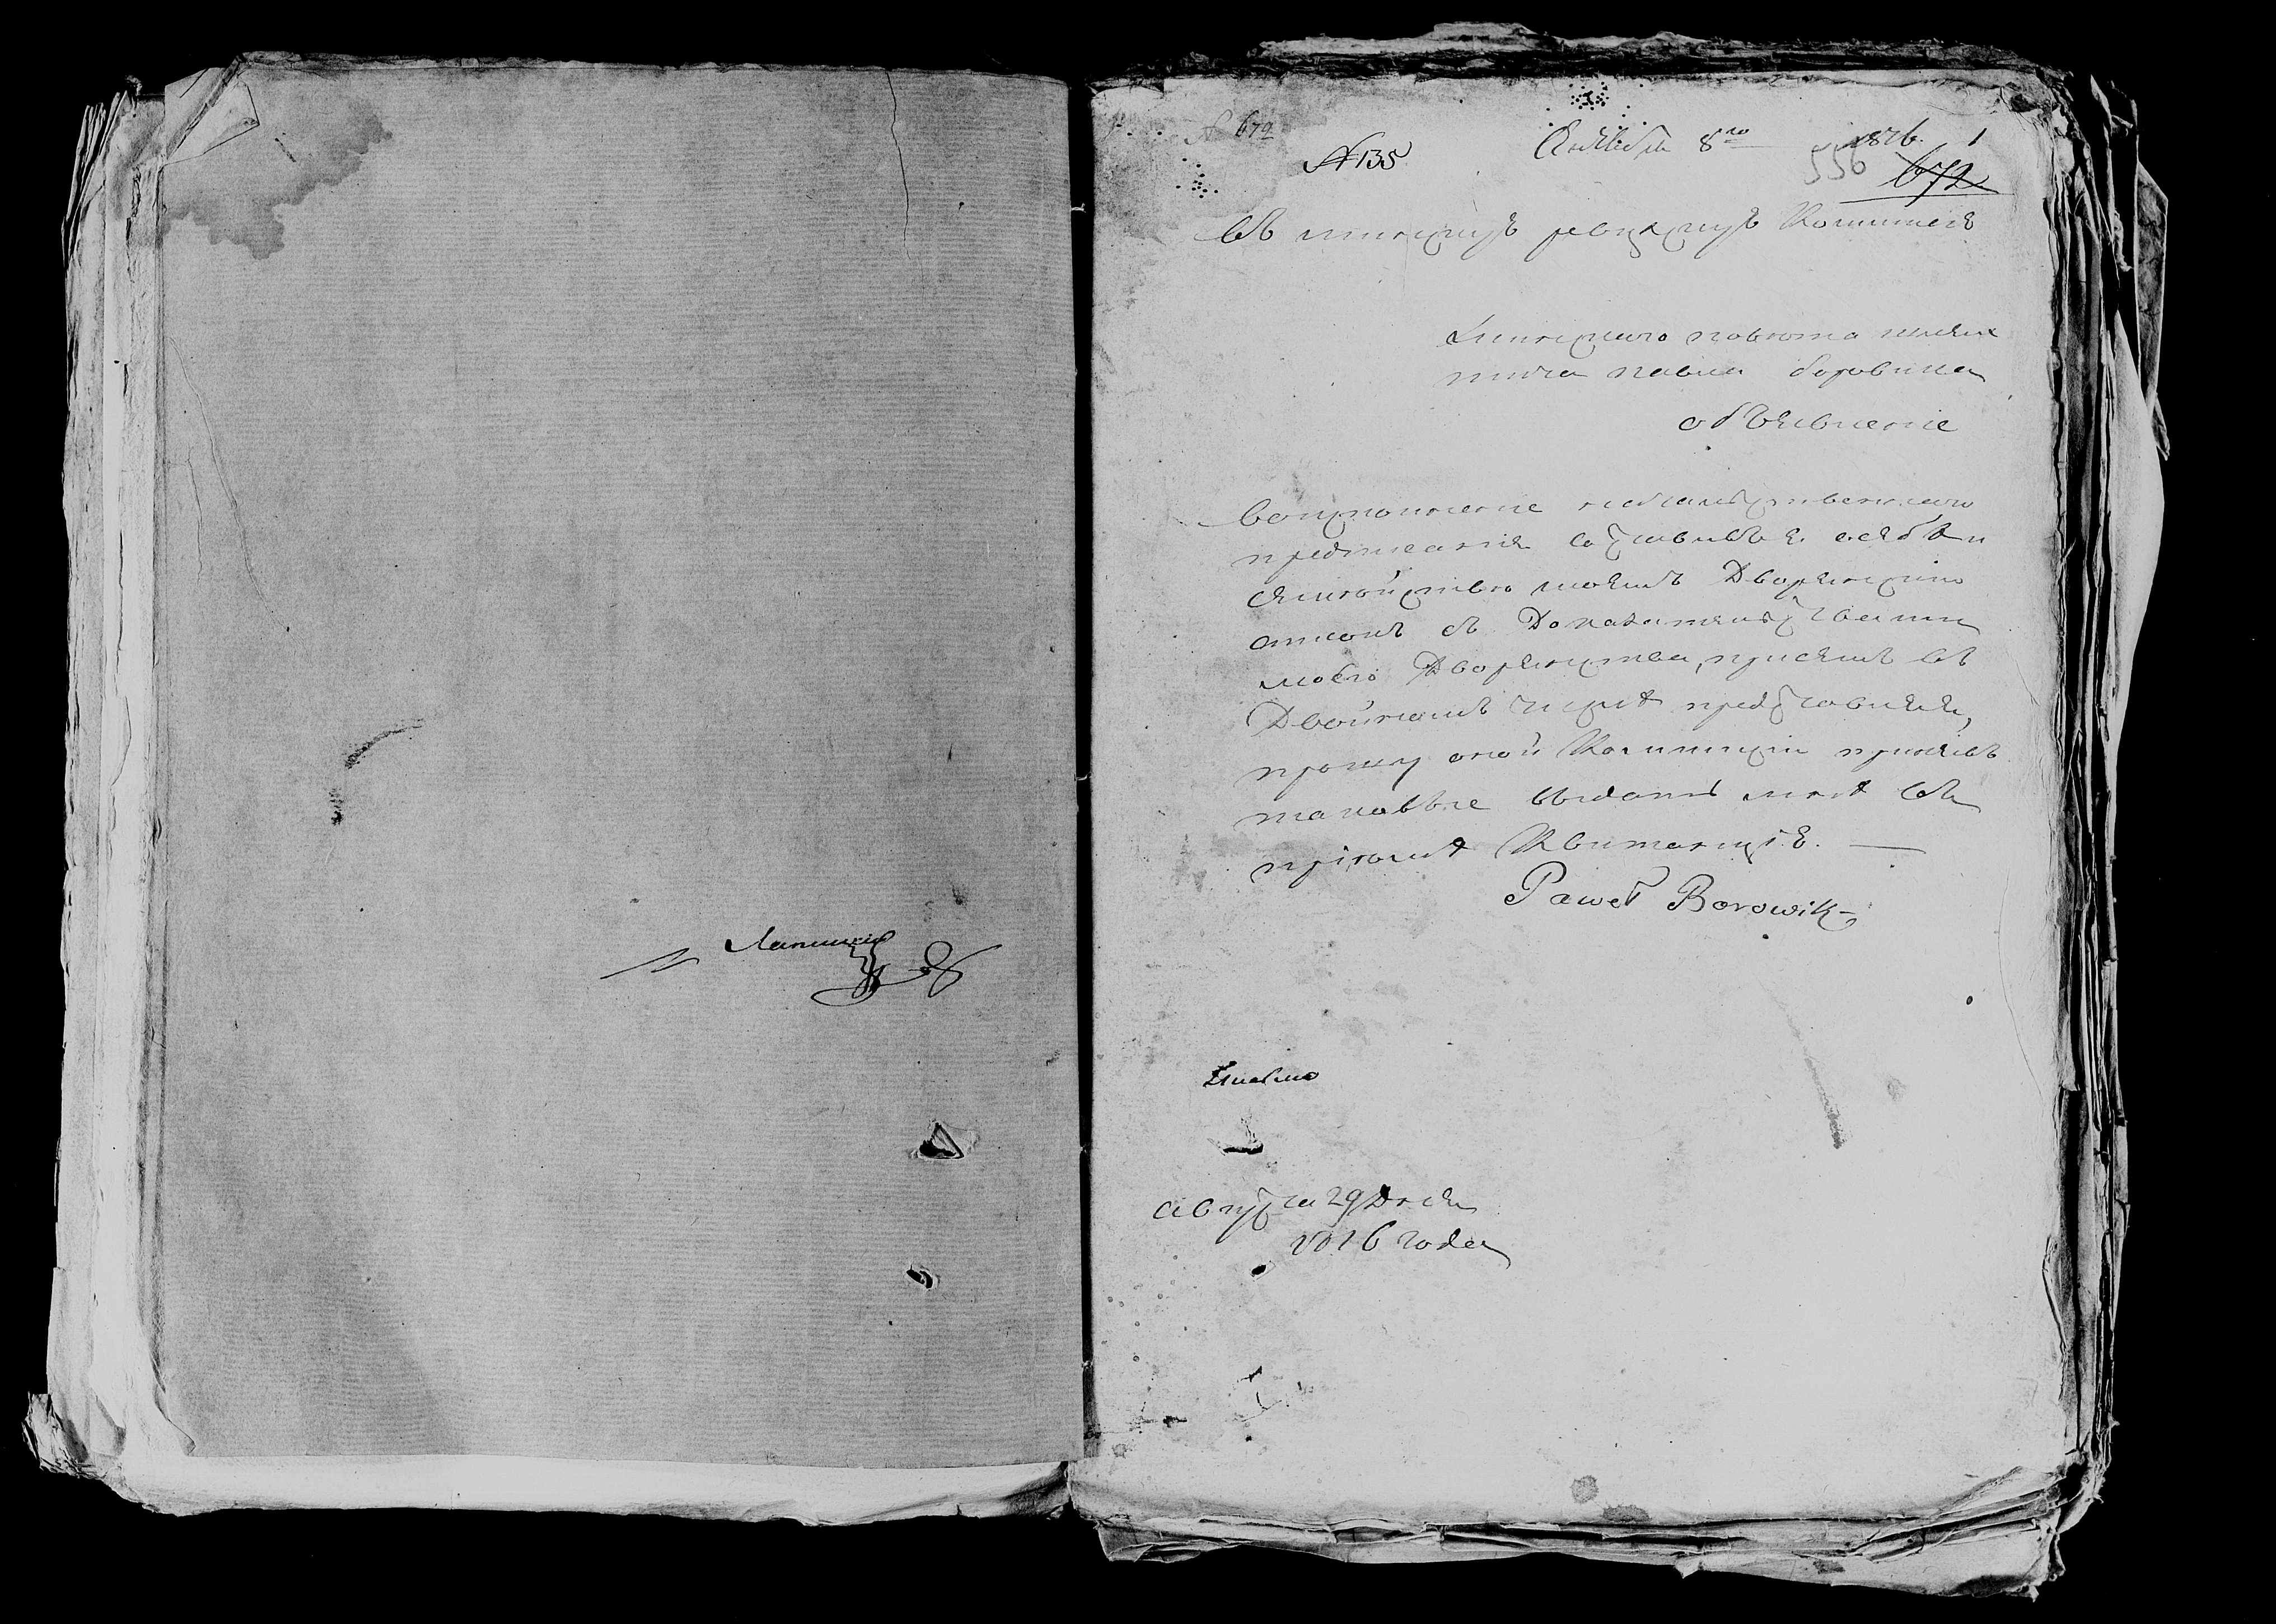 № 672
№ 135
8го 1816. 1
556
672
Въ минскую ревизскую Комисию
минскаго повета шлях
тича павла боровика
объявление
Во исполнение начальственнаго
предписания составивъ я о себѣ и
семействѣ моемъ Дворянскую
опись съ Доказательствами
моего Дворянства, при семъ въ
Двойномъ числѣ представляя,
прошу оной Коммиссіи принявъ
таковые выдать мнѣ въ
пріюмѣ Квитанцію. —
Paweł Borowik
августа 29 Дня
1816 года